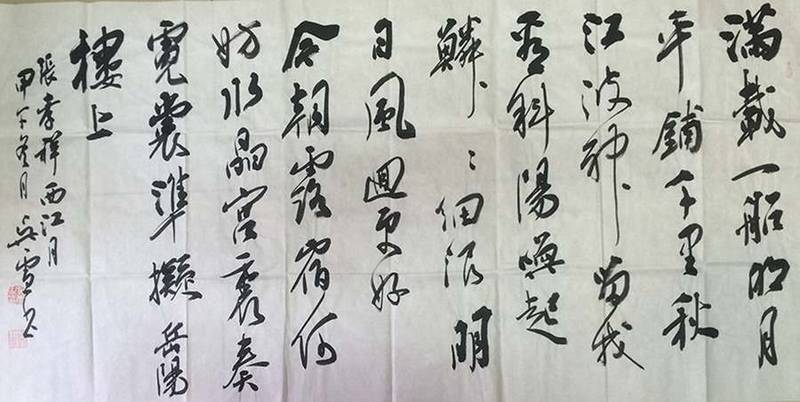 滿載一船明月
平鋪千里秋
江波神留我
看斜陽喚起
鱗々細浪明
日風迴更好
今朝露宿何
妨水晶宮裏奏
霓裳準擬岳陽
樓上
張孝祥西江月
甲午冬月吳雪书